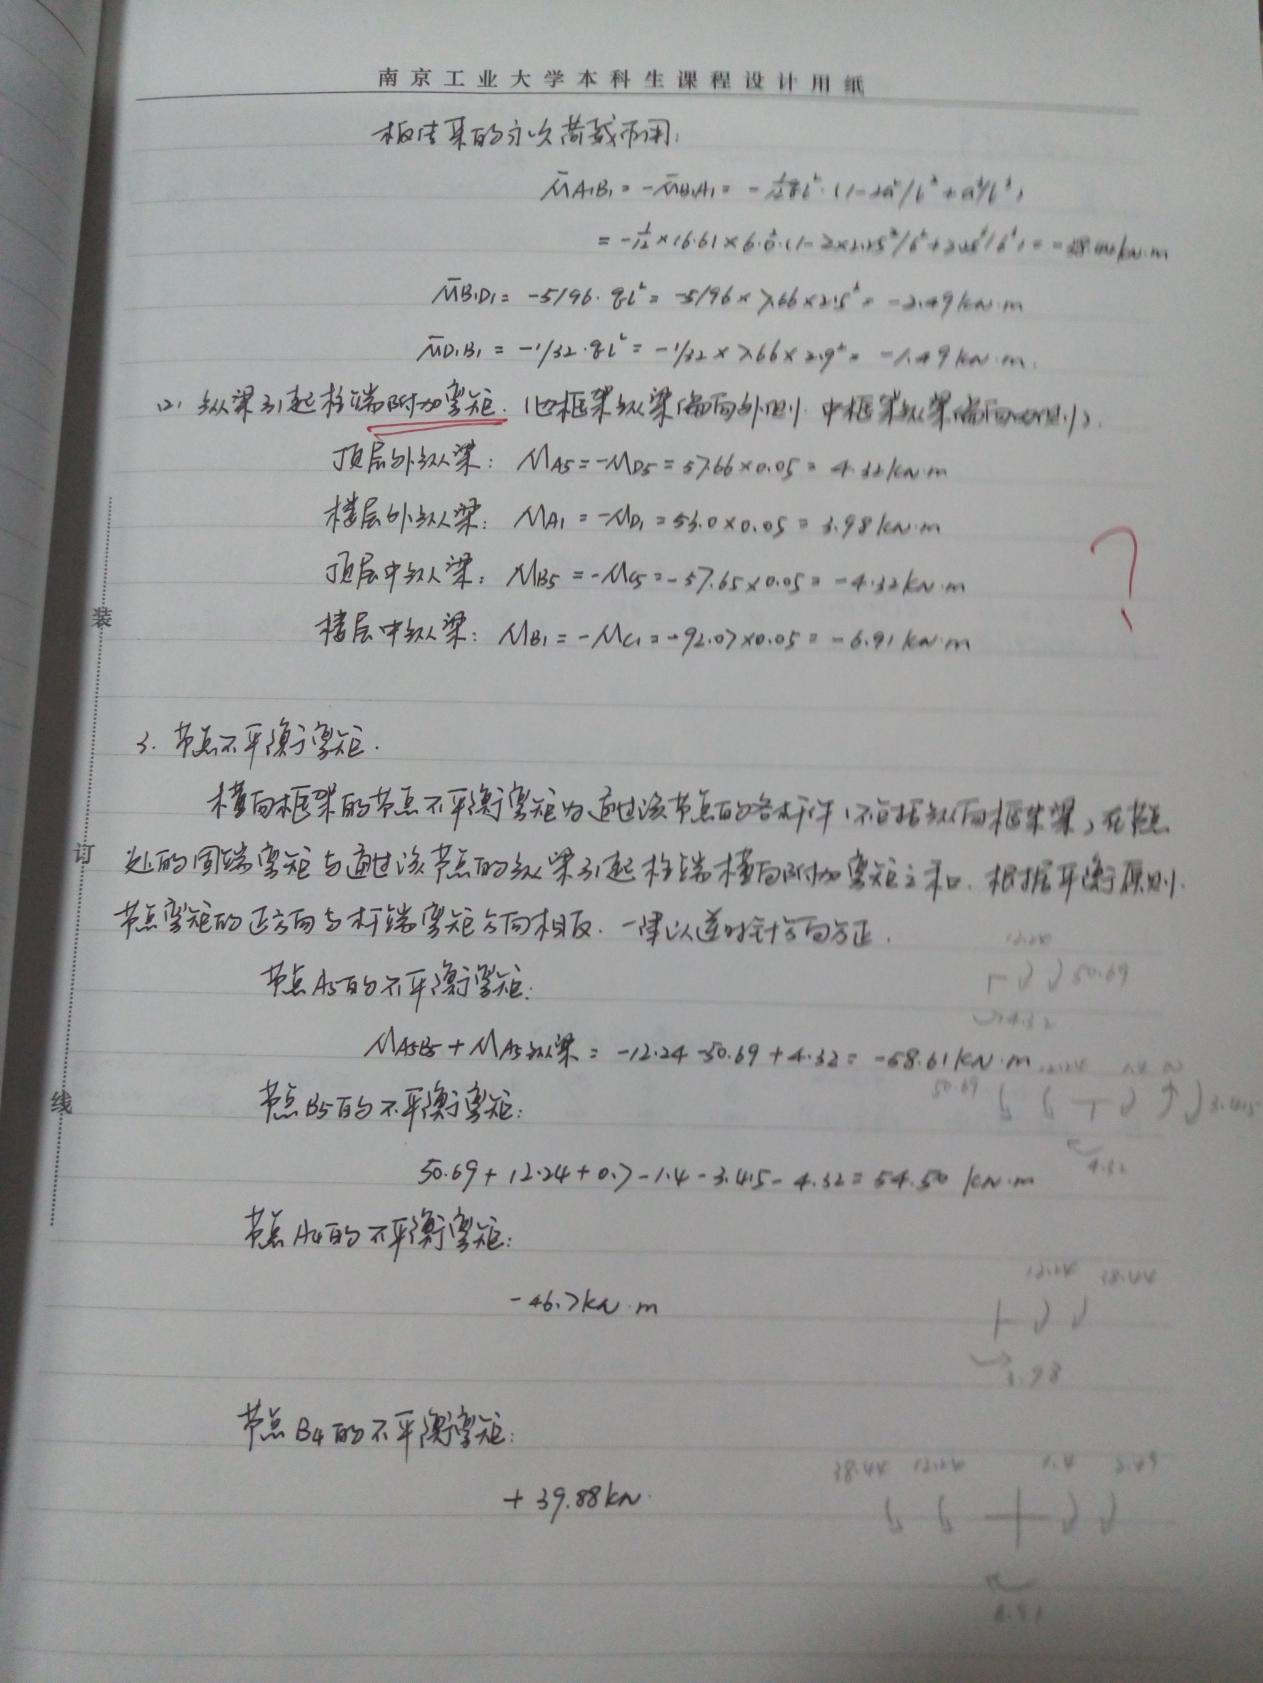 南京工业大学本科生课程设计用纸
板传来的永久荷载作用:
M̄A1B1 = -M̄B1A1 = -1/12 ql²·(1-2a²/l²+a³/l³)
= -1/12×16.61×6.0²·(1-2×2.25²/6²+2.25³/6³) = -38.44kN·m
M̄B1D1 = -5/96·ql² = -5/96×7.66×2.5² = -2.49kN·m
M̄D1B1 = -1/32·ql² = -1/32×7.66×2.5² = -1.49kN·m.
(2) 纵梁引起柱端附加弯矩. (边框架纵梁偏向外侧, 中框架纵梁偏向内侧).
顶层外纵梁: MA5=-MD5=57.66×0.05=4.32kN·m
楼层外纵梁: MA1=-MD1=53.0×0.05=3.98kN·m
顶层中纵梁: MB5=-MC5=-57.65×0.05=-4.32kN·m
楼层中纵梁: MB1=-MC1=-92.07×0.05=-6.91kN·m
?
装
3. 节点不平衡弯矩.
横向框架的节点不平衡弯矩为通过该节点的各杆件(不包括纵向框架梁)在节点
订
处的固端弯矩与通过该节点的纵梁引起柱端横向附加弯矩之和. 根据平衡原则.
节点弯矩的正方向与杆端弯矩方向相反. 一律以逆时针方向为正.
12.24
节点A5的不平衡弯矩:
50.69
4.32
MA5B5+MA5纵梁=-12.24-50.69+4.32=-58.61kN·m
50.69 12.24 1.4
线
节点B5的不平衡弯矩:
3.45
4.32
50.69+12.24+0.7-1.4-3.45-4.32=54.50 kN·m
节点A4的不平衡弯矩:
12.24 38.44
-46.7kN·m
3.98
节点B4的不平衡弯矩:
38.44 12.24 1.4 2.49
+39.88kN.
6.91